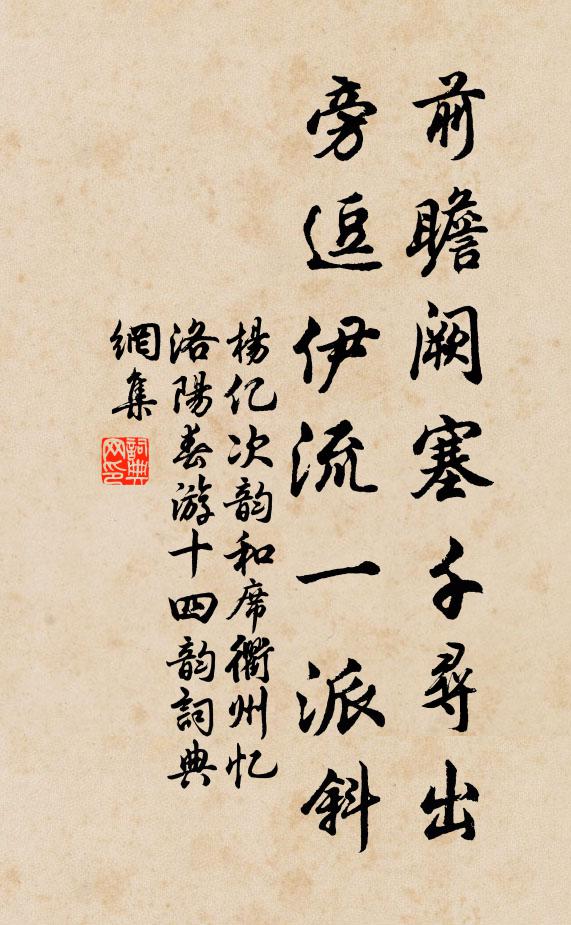 前瞻阙塞千尋出
旁逗伊流一派斜
楊亿次韵和席衢州忆
洛陽春游十四韵詞典
網集
詞典
网印